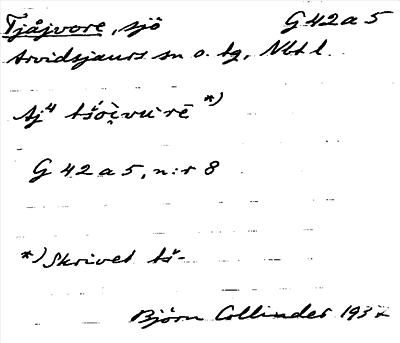 Tjåjvore, sjö G 42 a 5
Arvidsjaurs sn o. tg, Nbtl.
Aj⁴ tšoi̯vu·rē *)
G 42 a 5, n:r 8
*) Skrivet tš-
Björn Collinder 1937